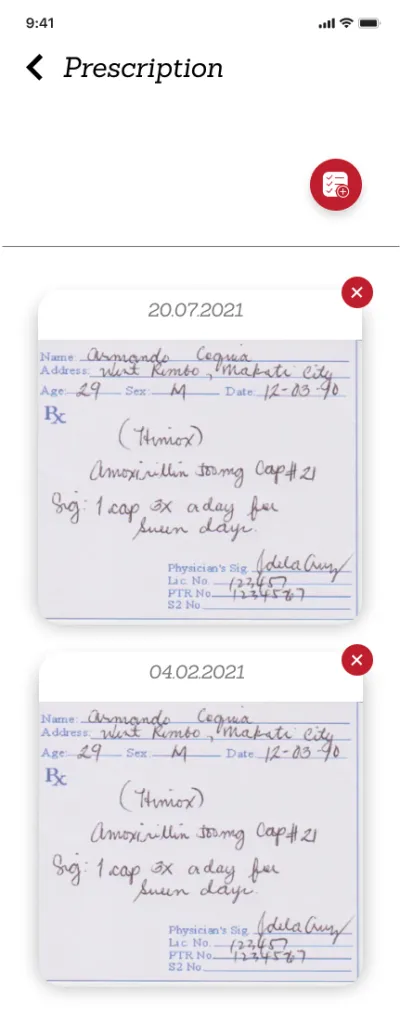 9:41
Prescription
20.07.2021
Name: Armando Cequia
Address: West Rembo, Makati City
Age: 29 Sex: M Date: 12-03-90
Rx
(Himox)
Amoxicillin 500mg Cap #21
Sig: 1 cap 3x a day for
seven days.
Physician's Sig. JdelaCruz
Lic. No. 123457
PTR No. 1234567
S2 No.
04.02.2021
Name: Armando Cequia
Address: West Rembo, Makati City
Age: 29 Sex: M Date: 12-03-90
Rx
(Himox)
Amoxicillin 500mg Cap #21
Sig: 1 cap 3x a day for
seven days.
Physician's Sig. JdelaCruz
Lic. No. 123457
PTR No. 1234567
S2 No.